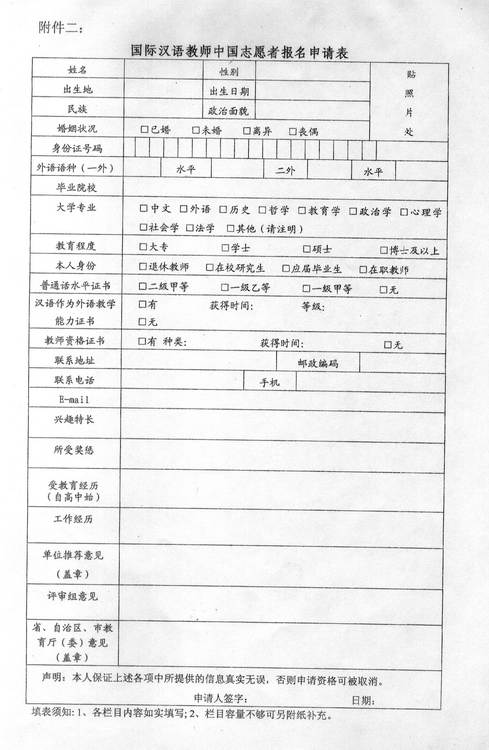 附件二：
国际汉语教师中国志愿者报名申请表
姓名 性别 贴照片处
出生地 出生日期
民族 政治面貌
婚姻状况 □已婚 □未婚 □离异 □丧偶
身份证号码
外语语种（一外） 水平 二外 水平
毕业院校
大学专业 □中文 □外语 □历史 □哲学 □教育学 □政治学 □心理学
□社会学 □法学 □其他（请注明）
教育程度 □大专 □学士 □硕士 □博士及以上
本人身份 □退休教师 □在校研究生 □应届毕业生 □在职教师
普通话水平证书 □二级甲等 □一级乙等 □一级甲等 □无
汉语作为外语教学 □有 获得时间： 等级：
能力证书 □无
教师资格证书 □有 种类： 获得时间： □无
联系地址 邮政编码
联系电话 手机
E-mail
兴趣特长
所受奖惩
受教育经历
（自高中始）
工作经历
单位推荐意见
（盖章）
评审组意见
省、自治区、市教
育厅（委）意见
（盖章）
声明：本人保证上述各项中所提供的信息真实无误，否则申请资格可被取消。
申请人签字： 日期：
填表须知：1、各栏目内容如实填写；2、栏目容量不够可另附纸补充。